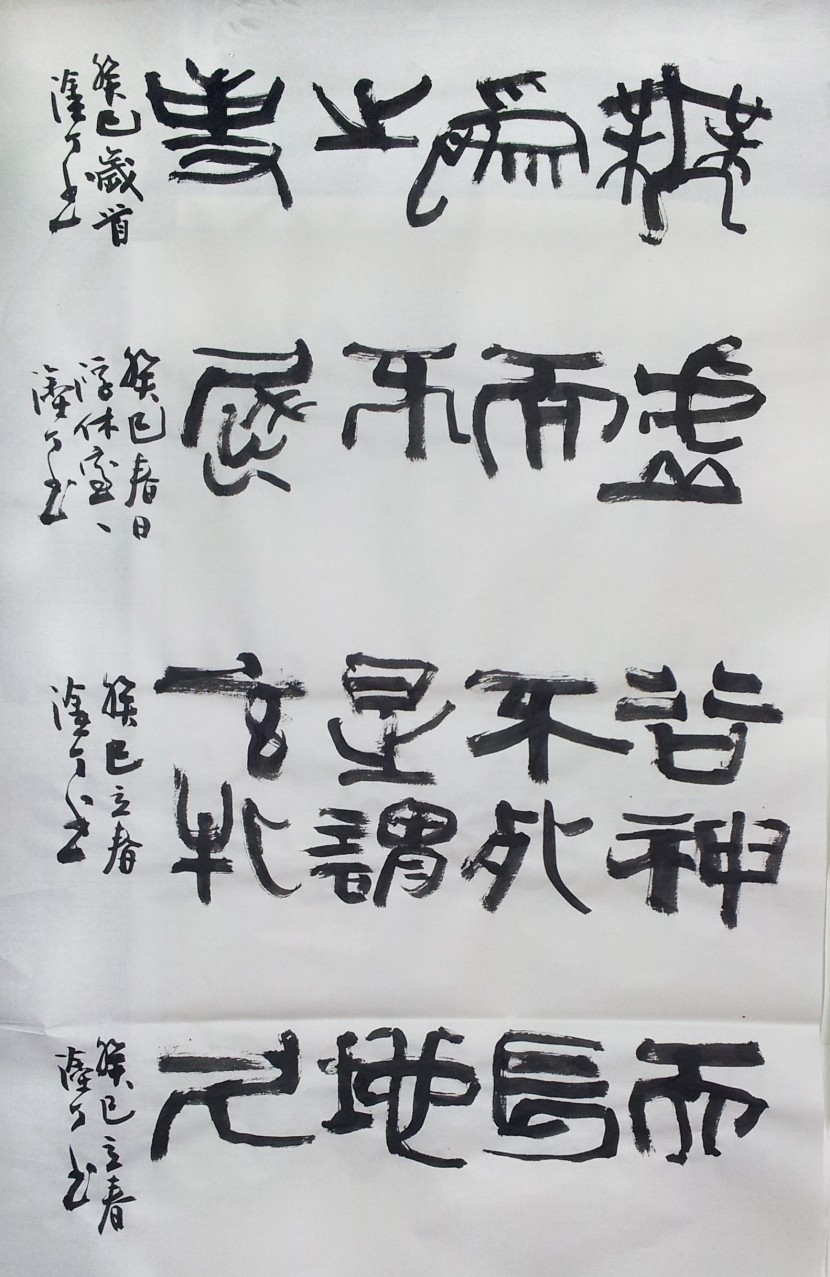 無為之事
癸巳歲首
書
虛而不屈
癸巳春日
浮休室
書
谷神
不死
是謂
玄牝
癸巳立春
書
天長地久
癸巳立春
書